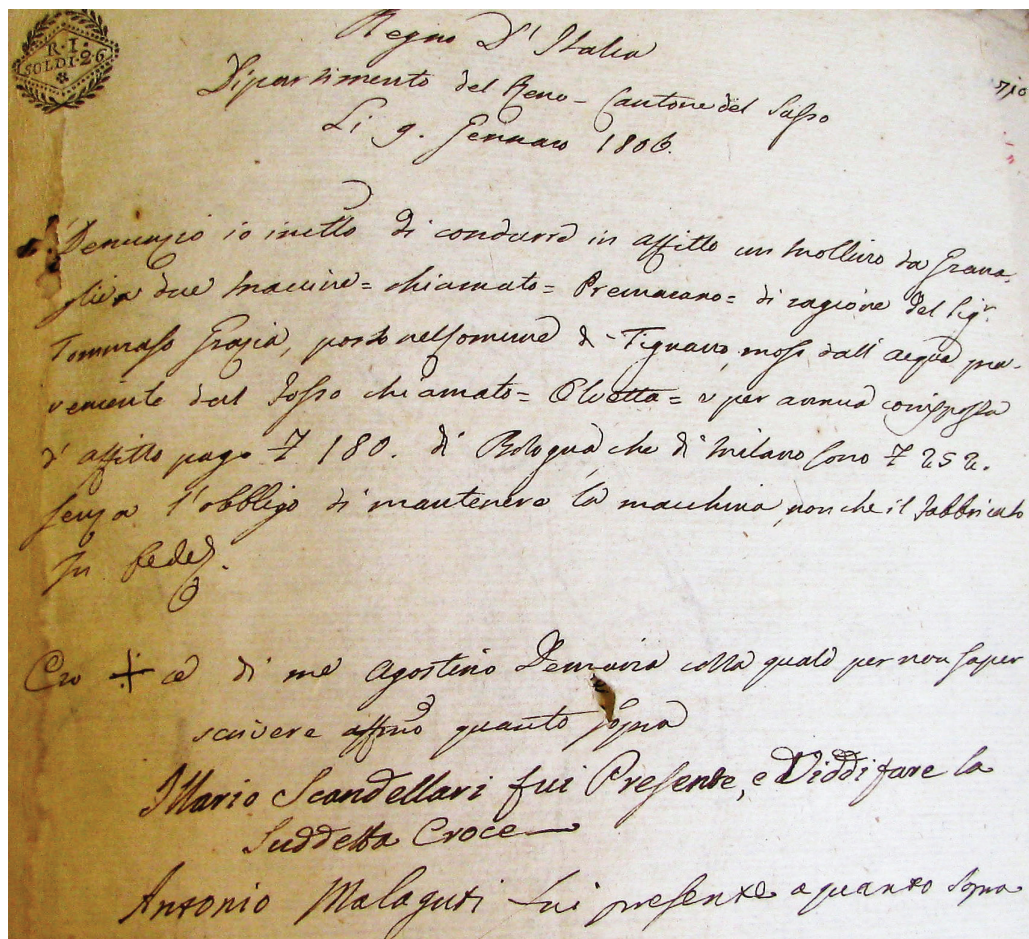 R. I.
SOLDI. 26
Regno D'Italia
Dipartimento del Reno - Cantone del Sasso
Li 9. Gennaro 1806.
Denunzio io infrtto di condurre in affitto un Mollino da Grana,
glie a due Maccine = chiamato = Premacano = di ragione del Sigr.
Tommaso Grazia, posto nel Comune di - Tignano mosso dall'acqua pro-
veniente dal Fosso chiamato = Olivetta = e per annua corrisposta
d'affitto pago £ 180. di Bologna che di Milano sono £ 252.
senza l'obbligo di mantenere la macchina, non che il Fabbricato
In fede
Cro + ce di me Agostino colla quale per non saper
scrivere affermo quanto sopra
Mario Scandellari fui Presente, e Viddi fare la
Suddetta Croce
Antonio Malaguti fui presente a quanto sopra